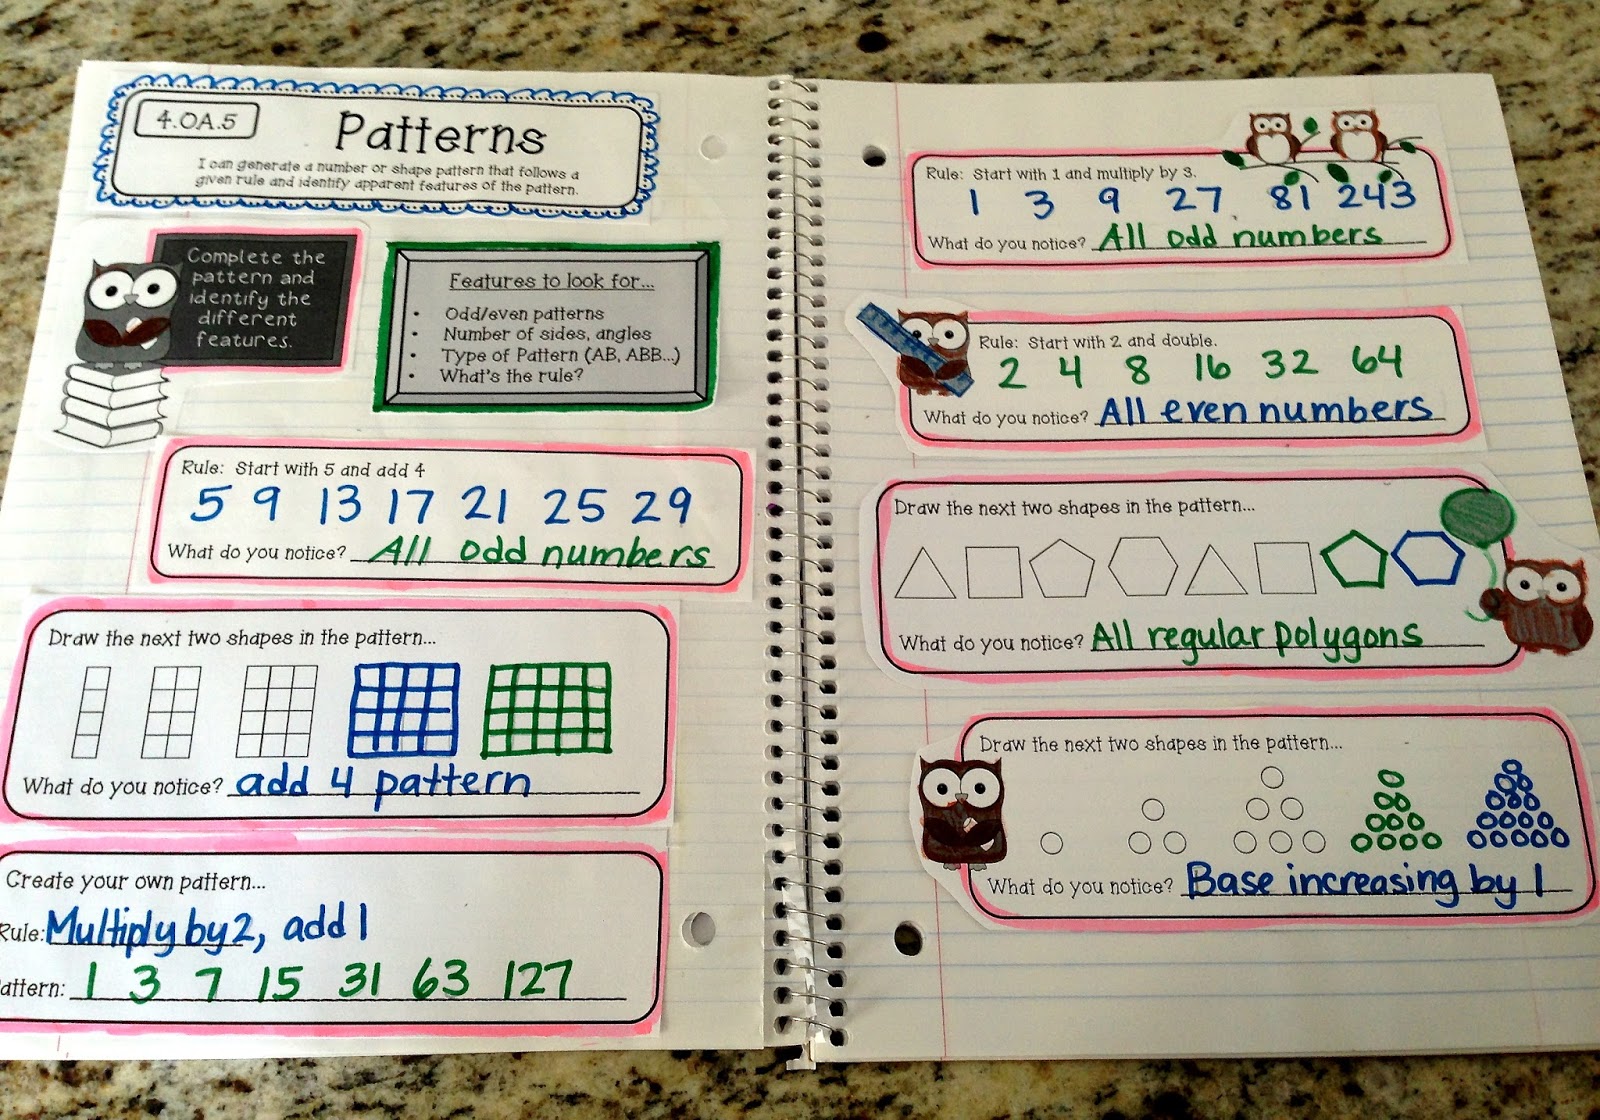 4.OA.5
Patterns
I can generate a number or shape pattern that follows a
given rule and identify apparent features of the pattern.
Complete the
pattern and
identify the
different
features.
Features to look for...
• Odd/even patterns
• Number of sides, angles
• Type of Pattern (AB, ABB...)
• What's the rule?
Rule: Start with 5 and add 4
5 9 13 17 21 25 29
What do you notice? All odd numbers
Draw the next two shapes in the pattern...
What do you notice? add 4 pattern
Create your own pattern...
Rule: Multiply by 2, add 1
attern: 1 3 7 15 31 63 127
Rule: Start with 1 and multiply by 3.
1 3 9 27 81 243
What do you notice? All odd numbers
Rule: Start with 2 and double.
2 4 8 16 32 64
What do you notice? All even numbers
Draw the next two shapes in the pattern...
What do you notice? All regular polygons
Draw the next two shapes in the pattern...
What do you notice? Base increasing by 1